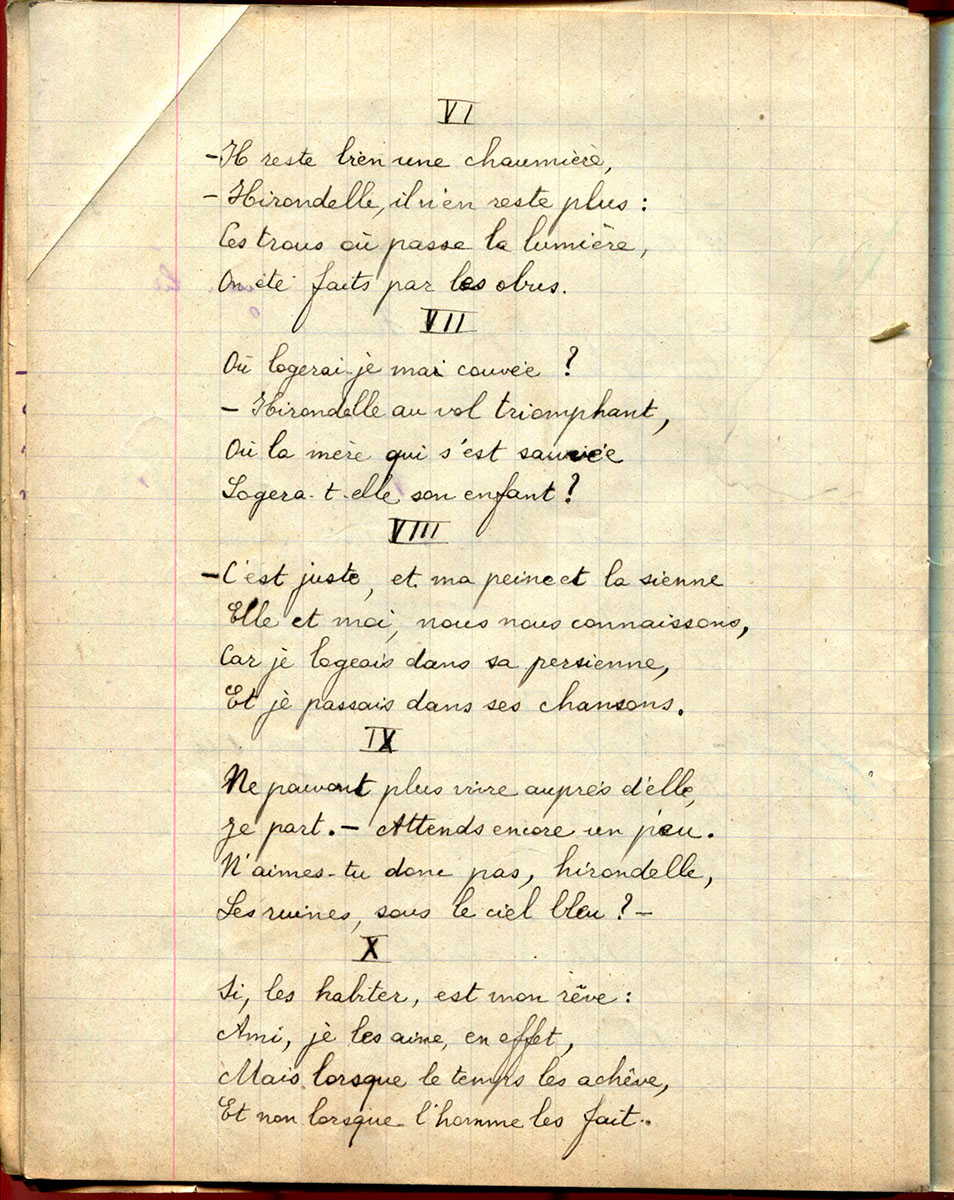 VI
- Il reste bien une chaumière,
- Hirondelle, il n'en reste plus :
Ces trous où passe la lumière,
On été faits par les obus.
VII
Où logerai-je mai couvée ?
- Hirondelle au vol triomphant,
Où la mère qui s'est sauvée
Logera-t-elle son enfant ?
VIII
- C'est juste, et ma peine et la sienne
Elle et moi, nous nous connaissons,
Car je logeais dans sa persienne,
Et je passais dans ses chansons.
IX
Ne pouvant plus vivre auprès d'elle,
Je part. - Attends encore un peu.
N'aimes-tu donc pas, hirondelle,
Les ruines, sous le ciel bleu ? -
X
Si, les habiter, est mon rêve :
Ami, je les aime, en effet,
Mais lorsque le temps les achève,
Et non lorsque l'homme les fait..